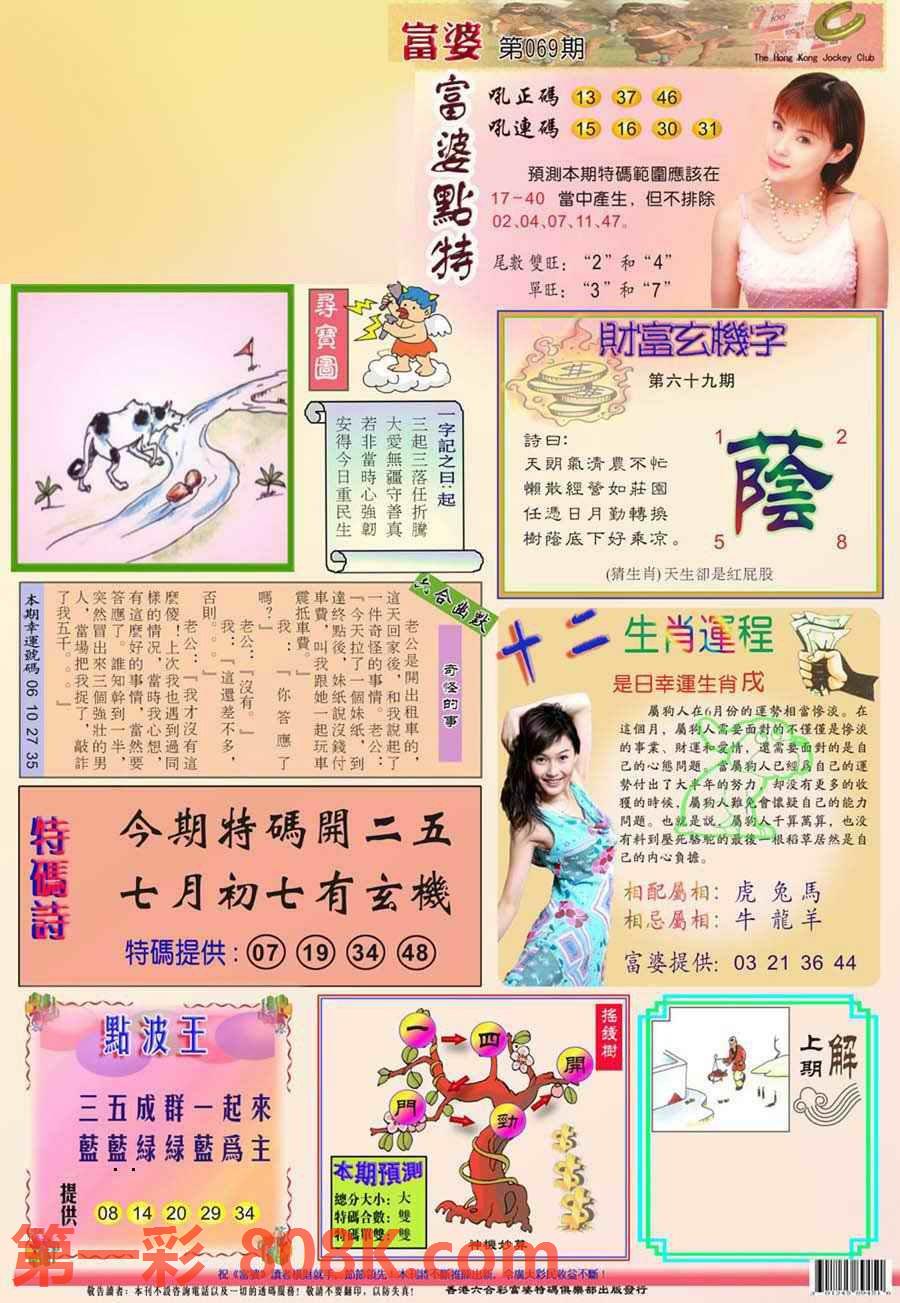 富婆 第069期
The Hong Kong Jockey Club
富婆點特
吼正碼 13 37 46
吼連碼 15 16 30 31
預測本期特碼範圍應該在
17-40 當中產生，但不排除
02、04、07、11、47。
尾數雙旺：“2”和“4”
單旺：“3”和“7”
尋寶圖
一字記之曰：起
三起三落任折騰
大愛無疆守善真
若非當時心強韌
安得今日重民生
財富玄機字
第六十九期
詩曰：
天朗氣清農不忙
懶散經營如莊園
任憑日月勤轉換
樹蔭底下好乘凉。
1 2
蔭
5 8
(猜生肖)天生卻是紅屁股
六合幽默
奇怪的事
老公是開出租車的，
這天回家後，和我說起了
一件奇怪的事情。老公：
『今天拉了一個妹紙，到
達終點後，妹紙說沒錢付
車費，叫我跟她一起玩車
震抵車費。』
我：『你答應了
嗎？』
老公：『沒有。』
我：『這還差不多，
否則。。。』
老公：『我才沒有這
麼傻！上次我也遇到過同
樣的情况，當時我心想，
有這麼好的事情，當然要
答應了。誰知幹到一半，
突然冒出來三個強壯的男
人，當場把我捉了，敲詐
了我五千。。。』
本期幸運號碼 06 10 27 35
十二生肖運程
是日幸運生肖戌
屬狗人在6月份的運勢相當慘淡。在
這個月，屬狗人需要面對的不僅僅是慘淡
的事業、財運和愛情，還需要面對的是自
己的心態問題。當屬狗人已經爲自己的運
勢付出了大半年的努力，却没有更多的收
獲的時候，屬狗人難免會懷疑自己的能力
問題。也就是説，屬狗人千算萬算，也没
有料到壓死駱駝的最後一根稻草居然是自
己的内心負擔。
相配屬相：虎 兔 馬
相忌屬相：牛 龍 羊
富婆提供：03 21 36 44
特碼詩
今期特碼開二五
七月初七有玄機
特碼提供：07 19 34 48
點波王
三五成群一起來
藍藍緑緑藍爲主
提供
08 14 20 29 34
搖錢樹
一 四 開
門 勁
本期預測
總分大小：大
特碼合數：雙
特碼單雙：雙
神機妙算
上期解
第一彩 808K.com
祝《富婆》讀者橫財就手，節節領先！本刊將不斷推陳出新，令廣大彩民收益不斷！
敬告讀者：本刊不設咨詢電話以及一切的透碼服務！敬請不要翻印，以防失真！
香港六合彩富婆特碼俱樂部出版發行